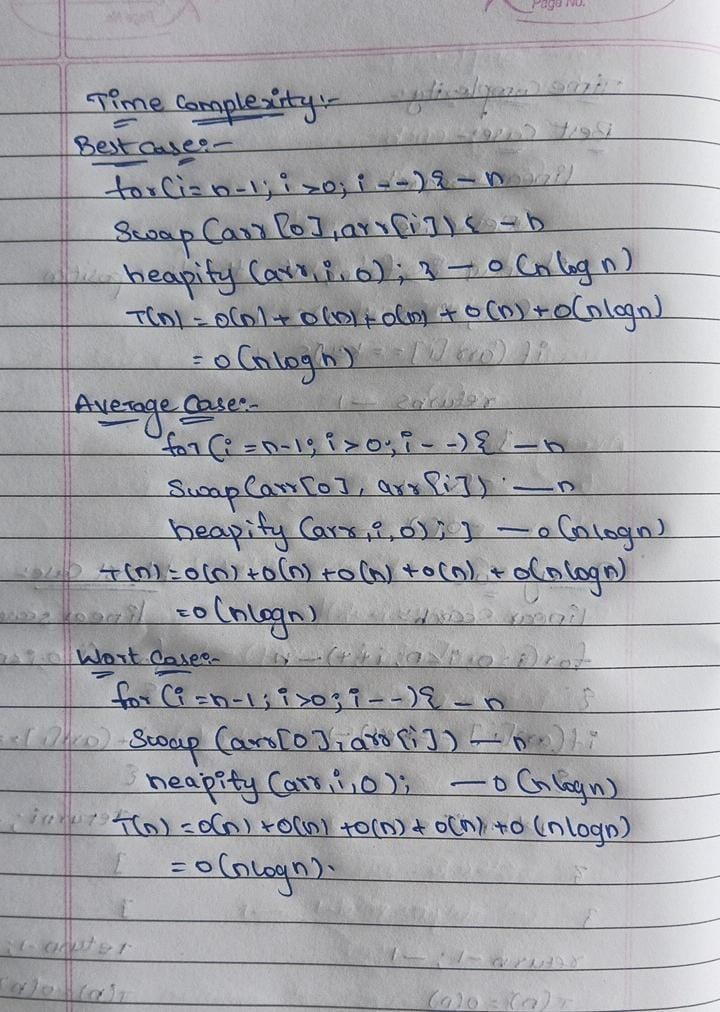 Page No.
Time Complexity:-
Best Case:-
for(i=n-1; i>0; i--){ - n
Swap (arr[0], arr[i]) { - n
heapify (arr, i, 0); } - O(n log n)
T(n) = O(n) + O(n) + O(n) + O(n) + O(n log n)
= O(n log n)
Average Case:-
for(i=n-1; i>0; i--){ - n
Swap (arr[0], arr[i]) - n
heapify (arr, i, 0); } - O(n log n)
T(n) = O(n) + O(n) + O(n) + O(n) + O(n log n)
= O(n log n)
Wort Case:-
for (i=n-1; i>0; i--){ - n
Swap (arr[0], arr[i]) - n
heapify (arr, i, 0); - O(n log n)
T(n) = O(n) + O(n) + O(n) + O(n) + O(n log n)
= O(n log n).